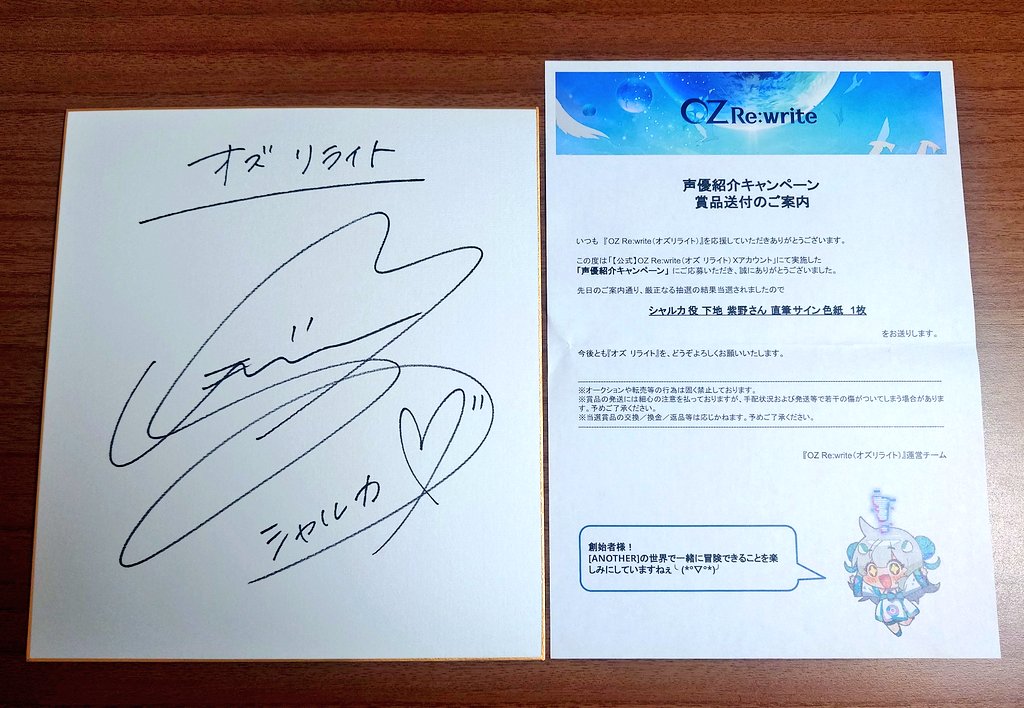 オズ リライト
シャルカ
OZ Re:write
声優紹介キャンペーン
賞品送付のご案内
いつも『OZ Re:write（オズリライト）』を応援していただきありがとうございます。
この度は「【公式】OZ Re:write（オズ リライト）Xアカウント」にて実施した
「声優紹介キャンペーン」にご応募いただき、誠にありがとうございました。
先日のご案内通り、厳正なる抽選の結果当選されましたので
シャルカ役 下地 紫野さん 直筆サイン色紙 1枚
をお送りします。
今後とも『オズ リライト』を、どうぞよろしくお願いいたします。
※オークションや転売等の行為は固く禁止しております。
※賞品の発送には細心の注意を払っておりますが、手配状況および発送等で若干の傷がついてしまう場合がありま
す。予めご了承ください。
※当選賞品の交換／換金／返品等は応じかねます。予めご了承ください。
『OZ Re:write（オズリライト）』運営チーム
創始者様！
[ANOTHER]の世界で一緒に冒険できることを楽
しみにしていますねぇ╰(*°▽°*)╯